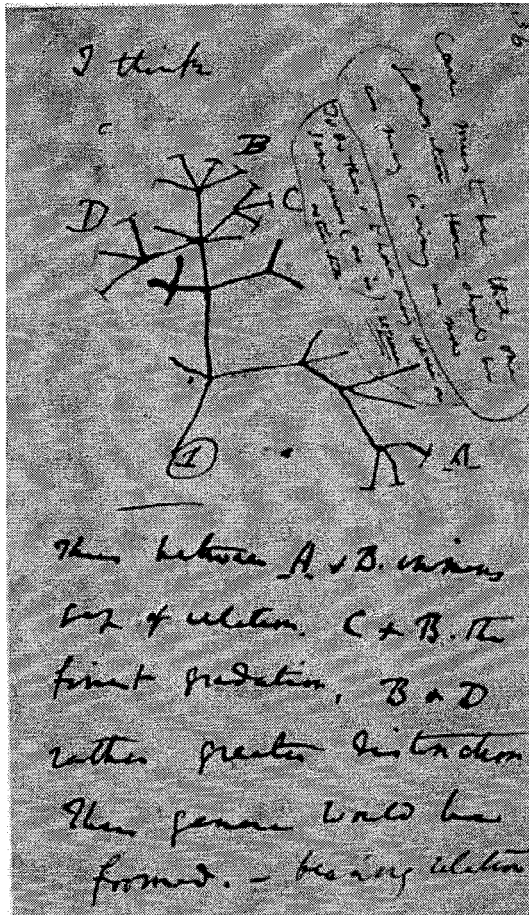 I think
B
D
C
Case must be that one
generation then should be
as many living as now
To do this & to have many species in
same genus (as is) requires
extinction
1
A
Thus between A & B. immens
gap of relation. C & B. The
finest gradation, B & D
rather greater distinction
Thus genera would be
formed. — bearing relation